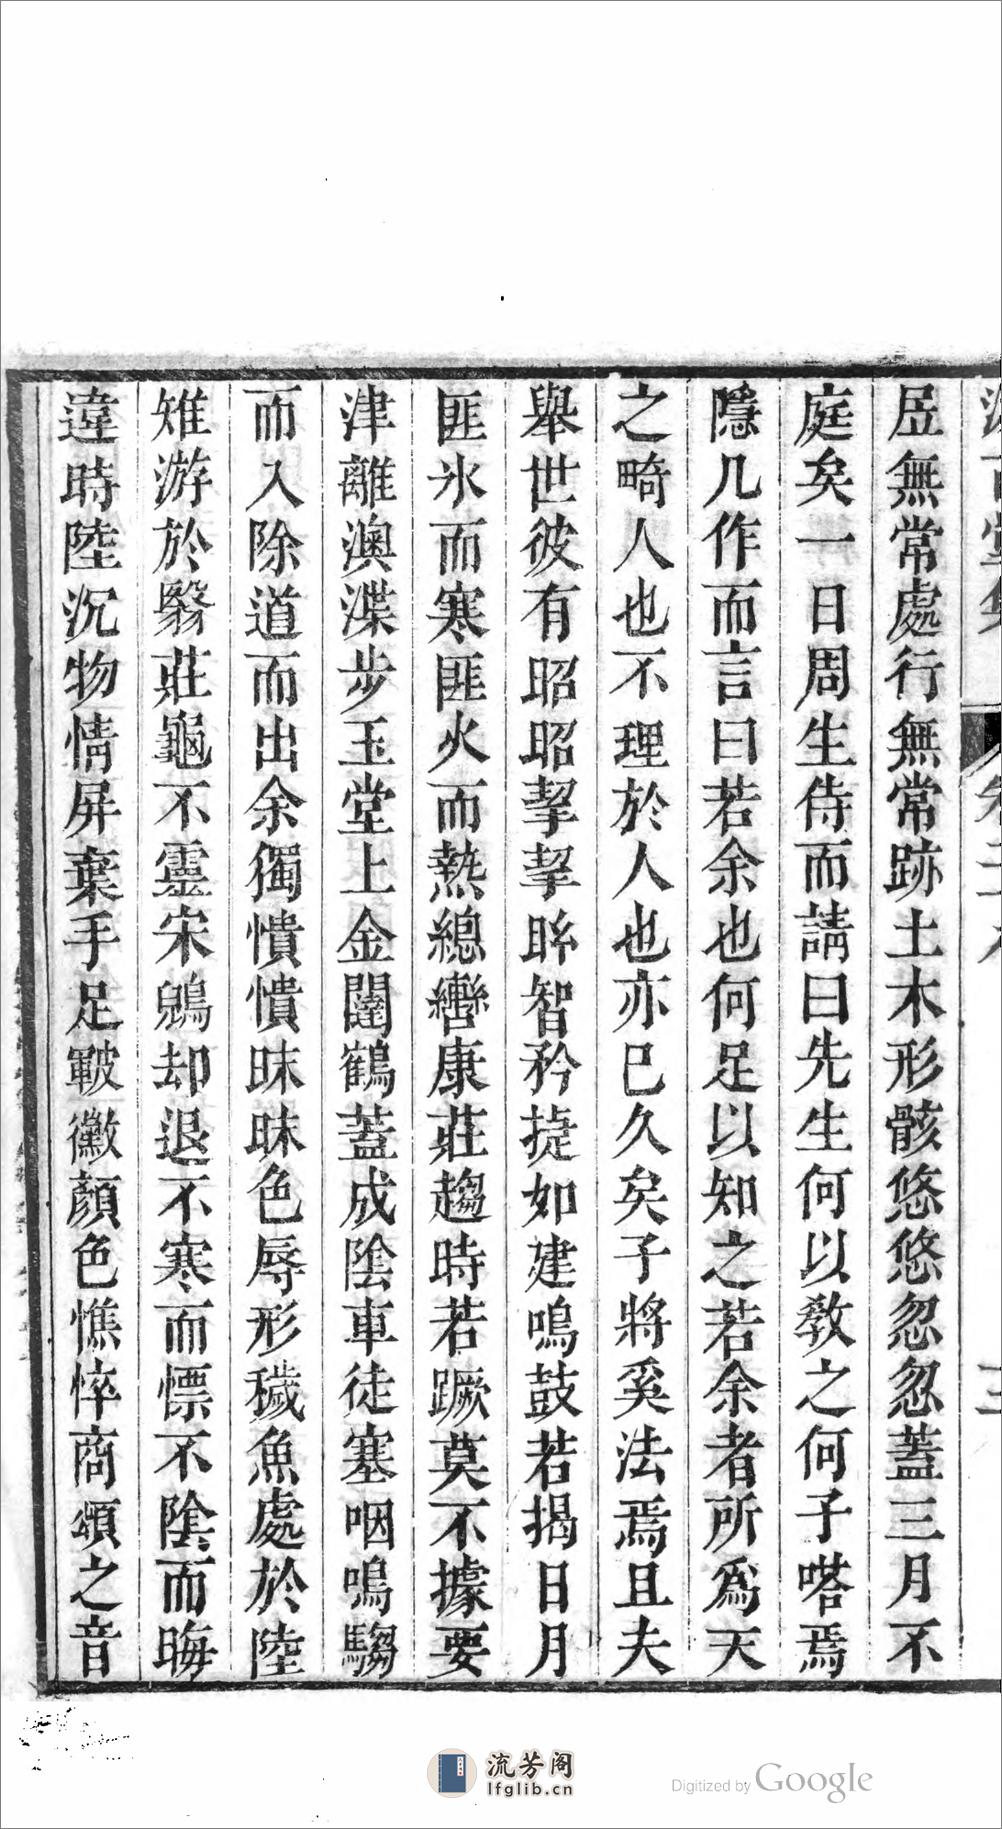 居無常處行無常跡土木形骸悠悠忽忽蓋三月不
庭矣一日周生侍而請曰先生何以敎之何子嗒焉
隱几作而言曰若余也何足以知之若余者所爲天
之畸人也不理於人也亦已久矣子將奚法焉且夫
舉世彼有昭昭挈挈眎智矜捷如建鳴鼓若揭日月
匪氷而寒匪火而熱總轡康莊趨時若蹶莫不據要
津離澳渫步玉堂上金閨鶴蓋成陰車徒塞咽鳴騶
而入除道而出余獨憒憒昧昧色辱形穢魚處於陸
雉游於翳莊龜不靈宋鷁却退不寒而慄不陰而晦
違時陸沉物情屏棄手足皸黴顏色憔悴商頌之音
流芳阁
lfglib.cn
Digitized by Google